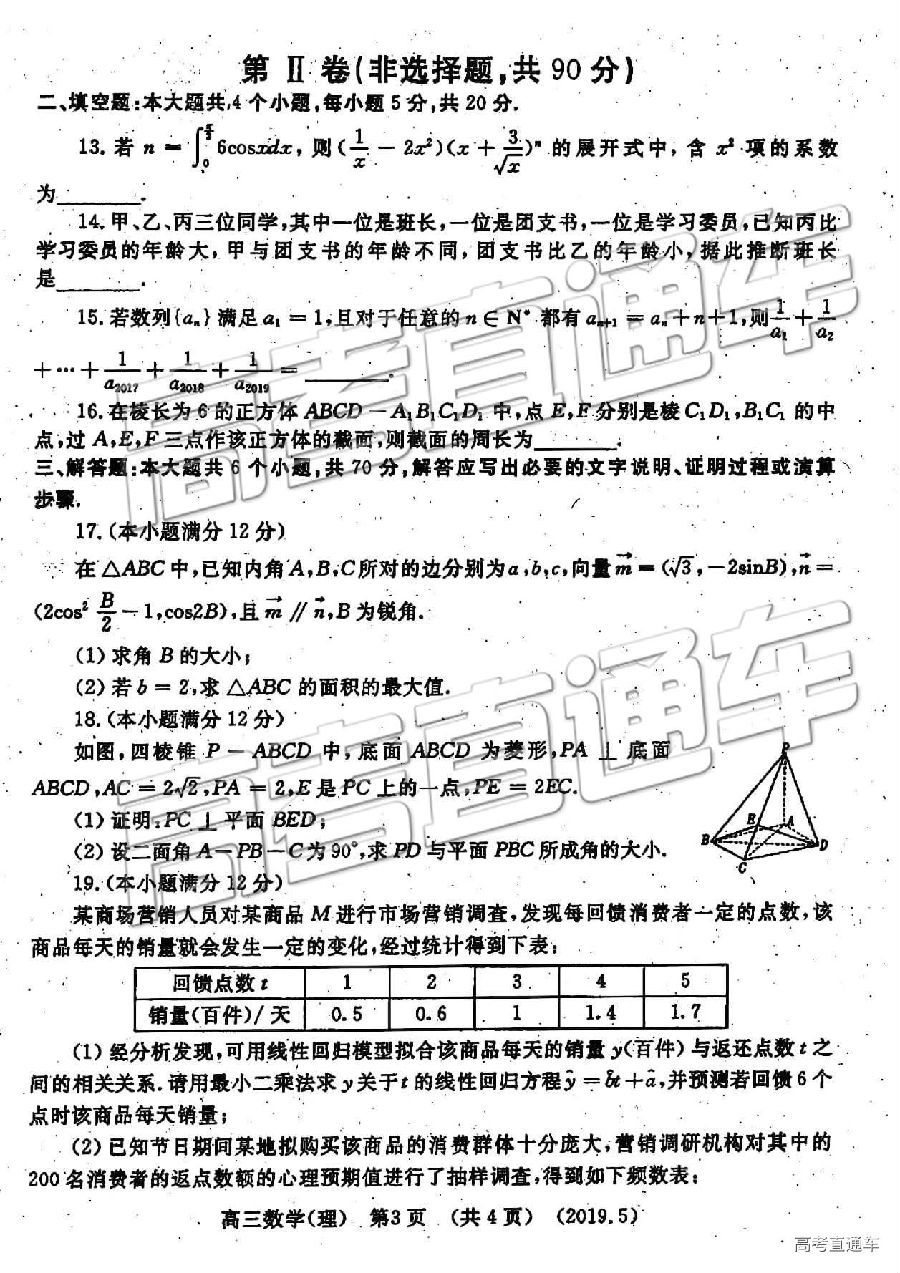 第 Ⅱ 卷(非选择题,共90分)
二、填空题:本大题共4个小题,每小题5分,共20分.
13. 若 n = ∫₀^{π/2} 6cosxdx, 则(1/x − 2x²)(x + 3/√x)ⁿ 的展开式中, 含 x² 项的系数
为________.
14. 甲、乙、丙三位同学,其中一位是班长,一位是团支书,一位是学习委员,已知丙比
学习委员的年龄大, 甲与团支书的年龄不同, 团支书比乙的年龄小, 据此推断班长
是________.
15. 若数列{aₙ}满足a₁ = 1,且对于任意的n ∈ N* 都有aₙ₊₁ = aₙ + n + 1,则 1/a₁ + 1/a₂
+ ⋯ + 1/a₂₀₁₇ + 1/a₂₀₁₈ + 1/a₂₀₁₉ = ________.
16. 在棱长为6的正方体 ABCD − A₁B₁C₁D₁ 中,点 E,F分别是棱C₁D₁,B₁C₁ 的中
点,过 A,E,F 三点作该正方体的截面,则截面的周长为________.
三、解答题:本大题共6个小题,共70分,解答应写出必要的文字说明、证明过程或演算
步骤.
17. (本小题满分12分)
在△ABC中,已知内角A,B,C所对的边分别为a,b,c,向量m⃗ = (√3, −2sinB), n⃗ =
(2cos² B/2 − 1, cos2B),且 m⃗ ∥ n⃗,B为锐角.
(1) 求角 B 的大小;
(2) 若 b = 2,求 △ABC 的面积的最大值.
18. (本小题满分12分)
如图, 四棱锥 P − ABCD 中, 底面 ABCD 为菱形, PA ⊥ 底面
ABCD, AC = 2√2, PA = 2, E 是 PC 上的一点, PE = 2EC.
(1) 证明:PC ⊥ 平面 BED;
(2) 设二面角 A−PB−C为90°,求PD与平面PBC所成角的大小.
P
A
E
B
D
C
19. (本小题满分12分)
某商场营销人员对某商品 M 进行市场营销调查,发现每回馈消费者一定的点数,该
商品每天的销量就会发生一定的变化,经过统计得到下表:
回馈点数t 1 2 3 4 5
销量(百件)/天 0.5 0.6 1 1.4 1.7
(1) 经分析发现,可用线性回归模型拟合该商品每天的销量 y(百件) 与返还点数 t 之
间的相关关系.请用最小二乘法求y关于t的线性回归方程ŷ = b̂t + â,并预测若回馈6个
点时该商品每天销量;
(2) 已知节日期间某地拟购买该商品的消费群体十分庞大,营销调研机构对其中的
200名消费者的返点数额的心理预期值进行了抽样调查,得到如下频数表:
高三数学(理) 第3页 (共4页) (2019.5)
高考直通车
高考直通车
高考直通车